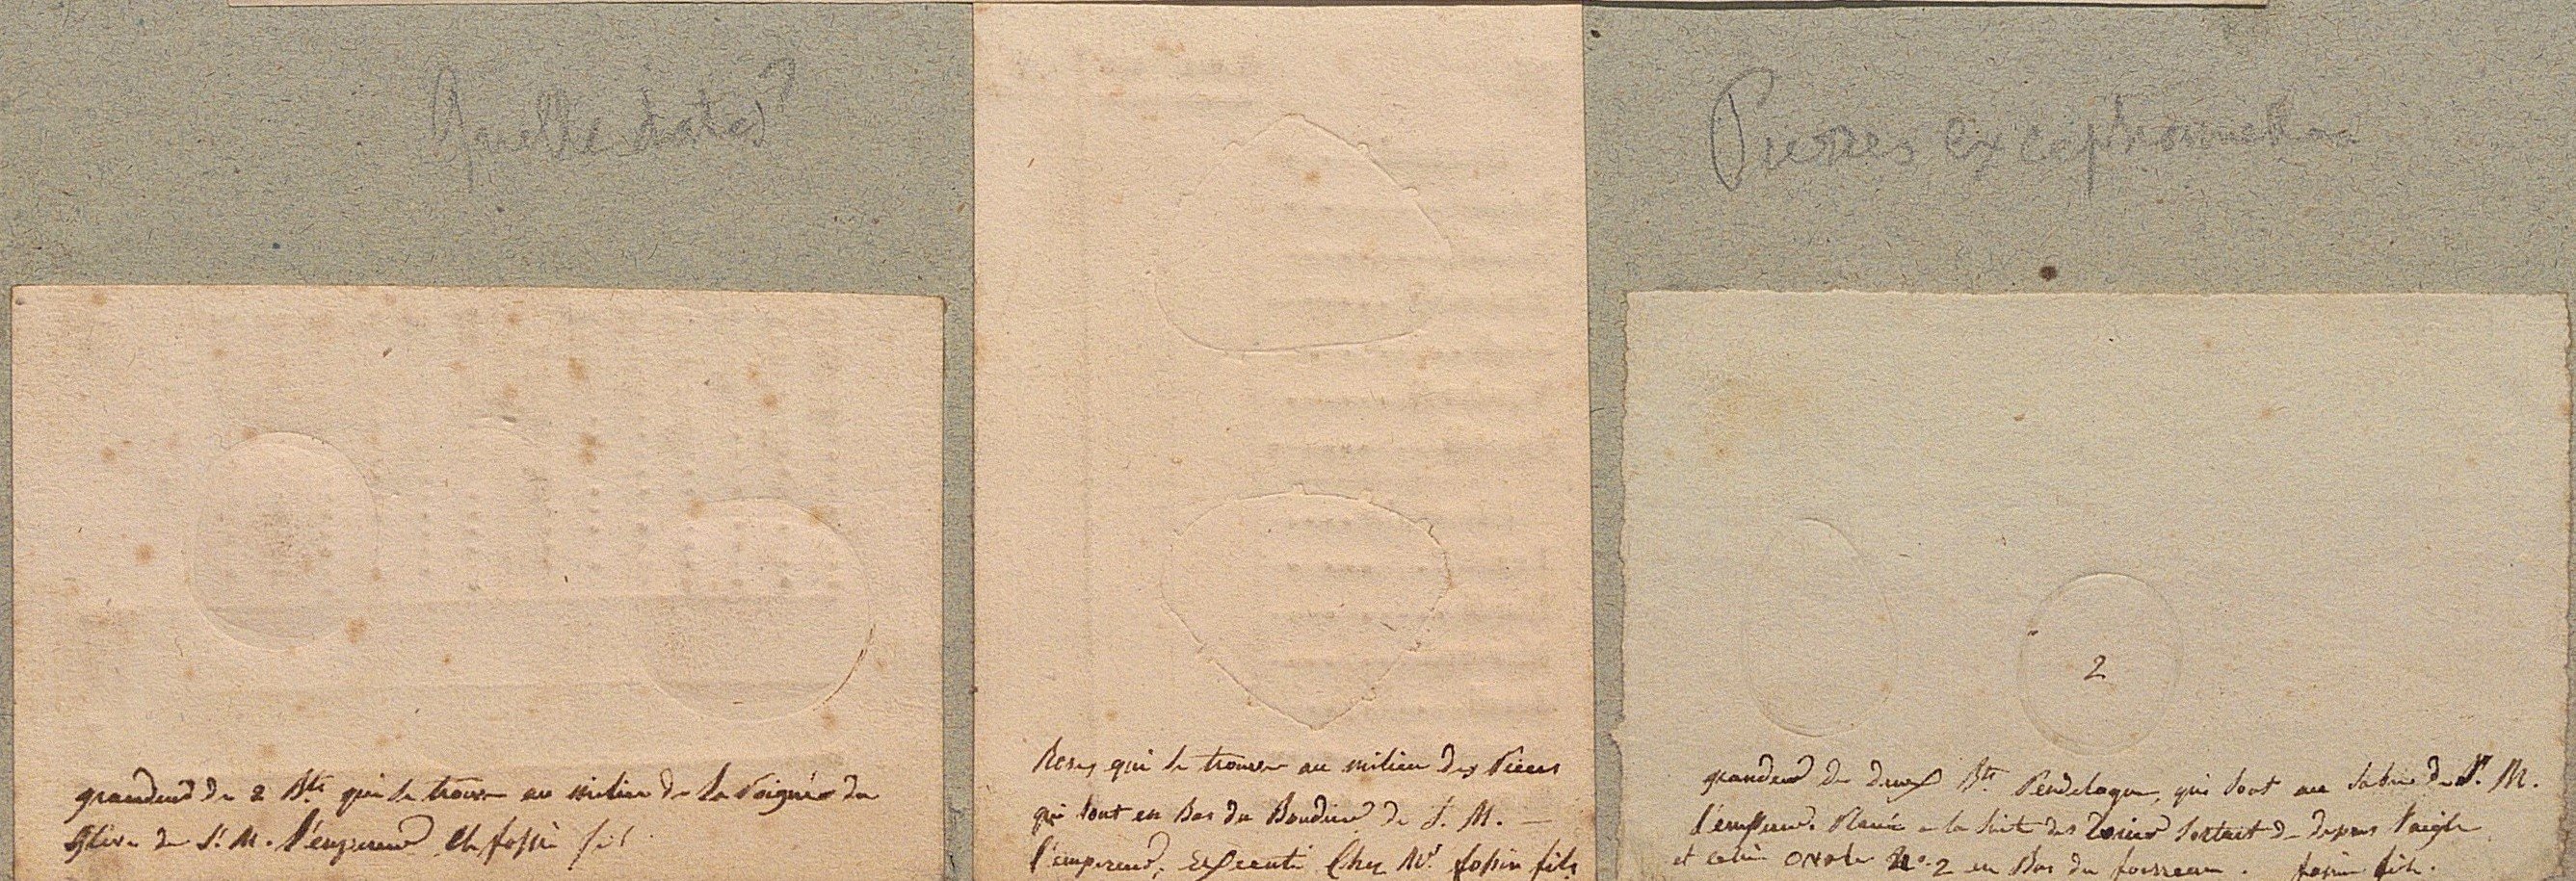 Quelle date ?
Pierres exceptionnelles
grandeur de 2 Bts qui se trouve au milieu de la Poignée du
Glive de S. M. l'empereur fossin fils
Roses qui se trouve au milieu des Pieces
qui sont en Bas du Baudrier de S. M. —
l'empereur, Executé Chez Mr fossin fils
grandeur de deux Bts Pendeloque, qui sont au Sabre de S. M.
l'empereur. Placé a la suite des sortant de dessous l'aigle
et celui ovale No. 2 en Bas du fourreau. fossin fils.
2